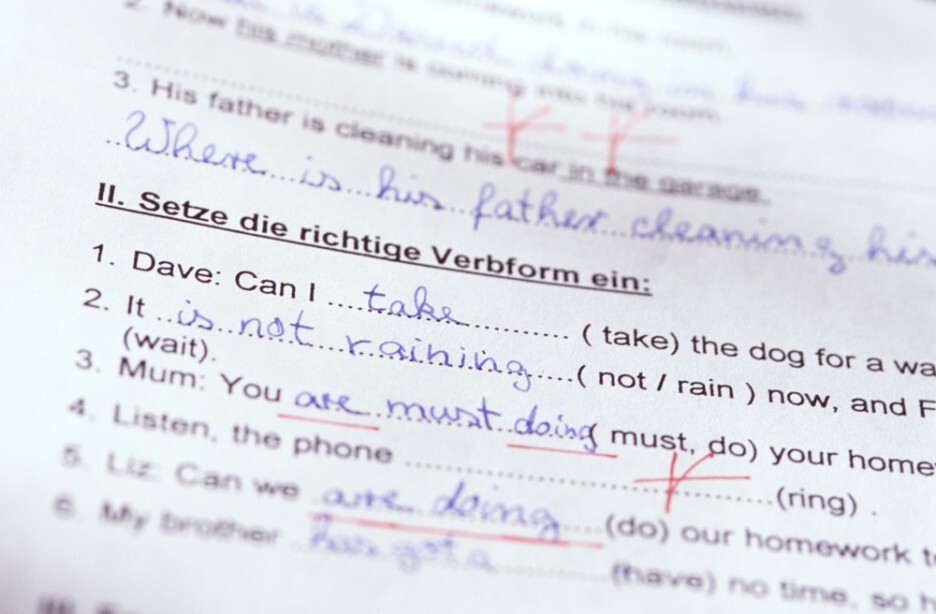 2. Now his mother is coming into his room.
3. His father is cleaning his car in the garage.
Where is his father cleaning his
II. Setze die richtige Verbform ein:
1. Dave: Can I ....take............ ( take) the dog for a wa
2. It ..is not raining....( not / rain ) now, and F
(wait).
3. Mum: You are must doing( must, do) your home
4. Listen, the phone ........................(ring) .
5. Liz: Can we are doing....(do) our homework t
6. My brother has got a............(have) no time, so h